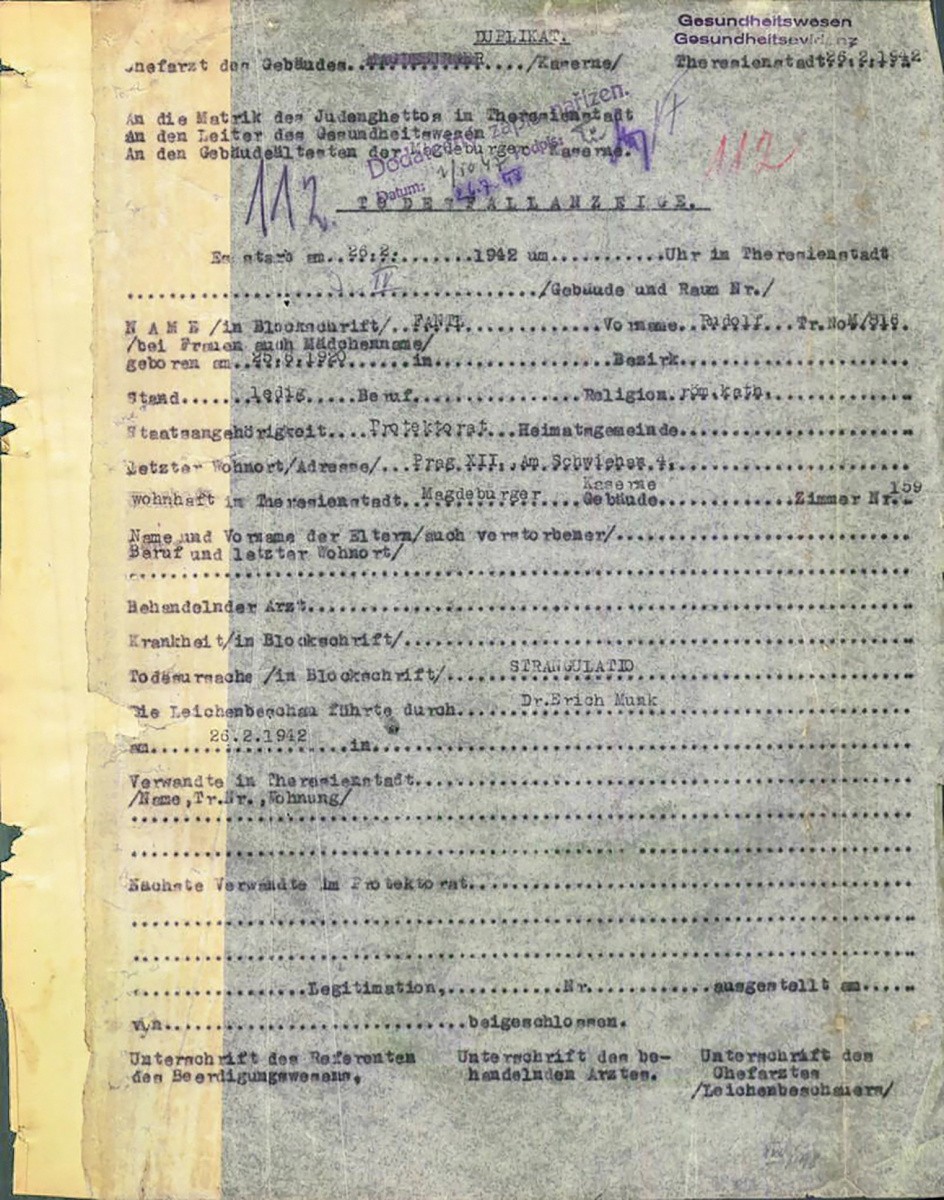 DUPLIKAT.
Gesundheitswesen
Gesundheitsevidenz
Chefarzt des Gebäudes....................../Kaserne/ Theresienstadt 26.2.1942
An die Matrik des Judenghettos in Theresienstadt
An den Leiter des Gesundheitswesen
An den Gebäudeältesten der Magdeburger Kaserne.
Datum:
112.
112
TODESFALLANZEIGE.
Es starb am..26.2.......1942 um...........Uhr in Theresienstadt
IV
......................................./Gebäude und Raum Nr./
NAME /in Blockschrift/..FANTL..............Vorname..Rudolf...Tr.No M/816.
/bei Frauen auch Mädchenname/
geboren am..25.6.1920.........in..................Bezirk.......................
Stand.......ledig.....Beruf.................Religion.röm.kath..............
Staatsangehörigkeit....Protektorat...Heimatsgemeinde.......................
Letzter Wohnort/Adresse/...Prag XII., Am Schwihen 4.......................
Kaserne
wohnhaft in Theresienstadt..Magdeburger....Gebäude............Zimmer Nr. 159
Name und Vorname der Eltern/auch verstorbener/.............................
Beruf und letzter Wohnort/
...........................................................................
Behandelnder Arzt..........................................................
Krankheit/in Blockschrift/.................................................
STRANGULATIO
Todesursache /in Blockschrift/.............................................
Dr.Erich Munk
Die Leichenbeschau führte durch............................................
26.2.1942
am....................in...................................................
Verwandte in Theresienstadt................................................
/Name,Tr.Nr.,Wohnung/
...........................................................................
...........................................................................
Nächste Verwandte im Protektorat...........................................
...........................................................................
...........................................................................
.................Legitimation,...........Nr............ausgestellt am......
von..............................beigeschlossen.
Unterschrift des Referenten Unterschrift des be- Unterschrift des
des Beerdigungswesens. handelnden Arztes. Chefarztes
/Leichenbeschauers/